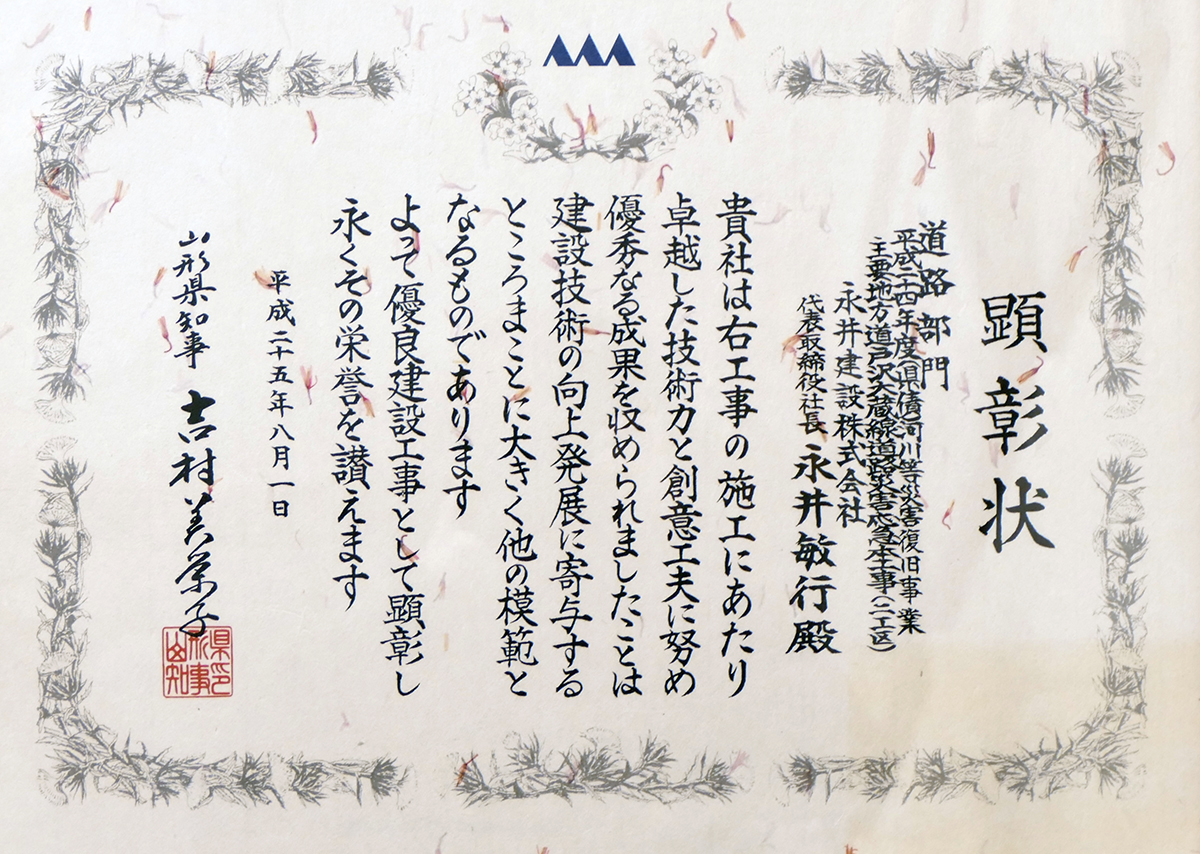 顕彰状
道路部門
平成二十四年度県債河川等災害復旧事業
主要地方道戸沢大蔵線道路災害応急本工事(二工区)
永井建設株式会社
代表取締役社長 永井敏行殿
貴社は右工事の施工にあたり
卓越した技術力と創意工夫に努め
優秀なる成果を収められましたことは
建設技術の向上発展に寄与する
ところまことに大きく他の模範と
なるものであります
よって優良建設工事として顕彰し
永くその栄誉を讃えます
平成二十五年八月一日
山形県知事 吉村美栄子
山形県知事印